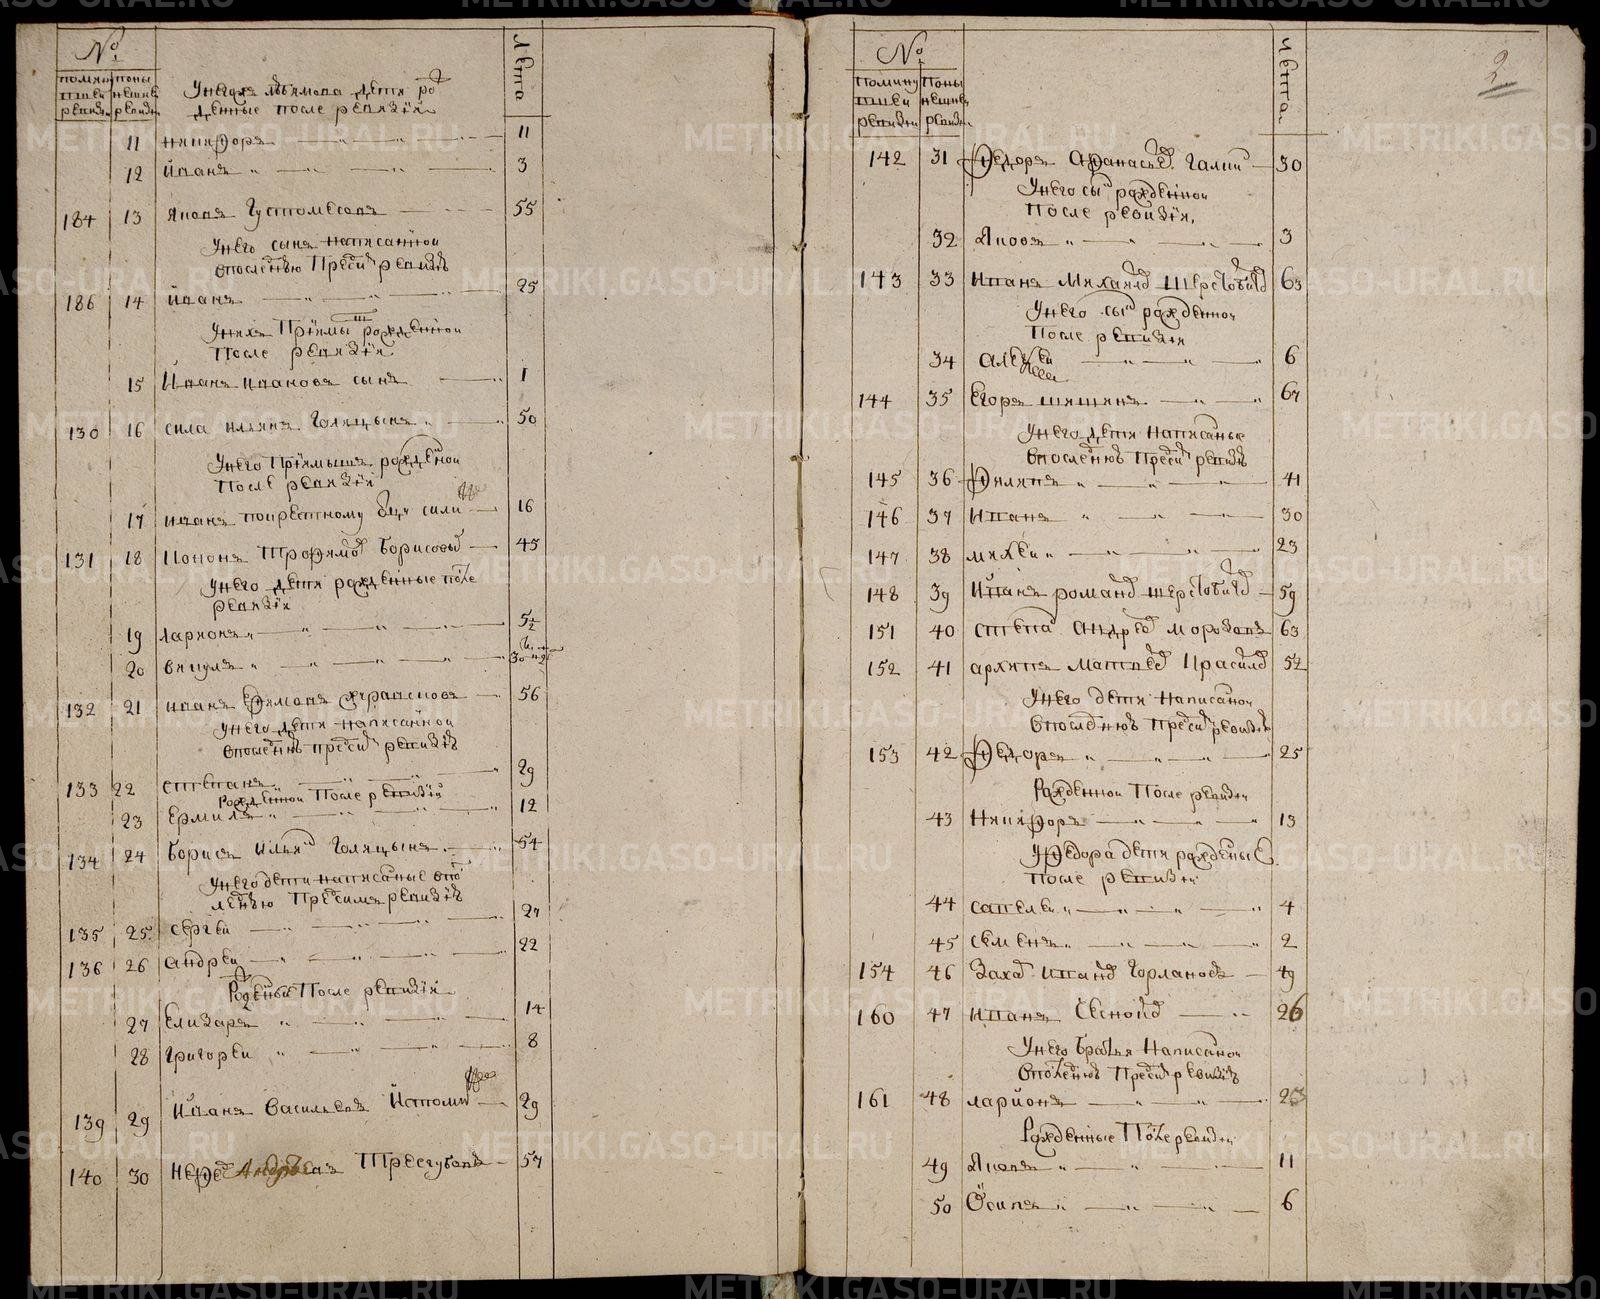 №
помянущей ревизии
по нынешней ревизии
Лета
У него же Ефимова дети ро
жденные после ревизии
11 Никифоръ 11
12 Иванъ 3
184 13 Яковъ Густомесовъ 55
У него сынъ написанной
в последнюю пред сим ревизию
186 14 Иванъ 25
после ревизии
15 Иванъ Ивановъ сынъ 1
130 16 Сила Ильинъ Голицынъ 50
У него приемышъ рожденой
после ревизии
17 Иванъ по крестному отцу Силинъ 16
131 18 Кононъ Трофимов Борисовых 45
У него дети рожденные после
ревизии
19 Ларионъ
20 Викулъ
132 21 Иванъ Ефимовъ 56
У него дети написанной
в последнюю пред сим ревизию
133 22 Степанъ 29
Рожденной после ревизии
23 Ермилъ 12
134 24 Борисъ Ильин Голицынъ 54
У него дети написаные в по
следнюю пред симъ ревизию
135 25 Сергей 27
136 26 Андрей 22
Рожденые после ревизии
27 Елизаръ 14
28 Григорей 8
139 29 Иванъ Васильевъ Истомин 29
140 30 Андреевъ Трегубовъ 57
№
2
помянущей ревизии
по нынешней ревизии
Лета
142 31 Федоръ Афанасьев Галин 30
У него сын рожденной
после ревизии
32 Яковъ 3
143 33 Иванъ Михайлов Шерстобитов 63
У него сын рожденной
после ревизии
34 Алексей 6
144 35 Егоръ Шишинъ 67
У него дети написаные
в последнюю пред сим ревизию
145 36 Филипъ 41
146 37 Иванъ 30
147 38 Михей 23
148 39 Иванъ Романов Шерстобитов 59
151 40 Степан Андреев Морозовъ 63
152 41 Архипъ Матвеев Красилов 52
У него дети написаной
в последнюю пред сим ревизию
153 42 Федоръ 25
Рожденной после ревизии
43 Никифоръ 13
У Федора дети рожденые
после ревизии
44 Савелей 4
45 Семенъ 2
154 46 Захар Иванов Горлановъ 49
160 47 Иванъ 26
У него братья написаной
в последнюю пред сим ревизию
161 48 Ларионъ 23
Рожденные после ревизии
49 Яковъ 11
50 Осипъ 6
METRIKI.GASO-URAL.RU